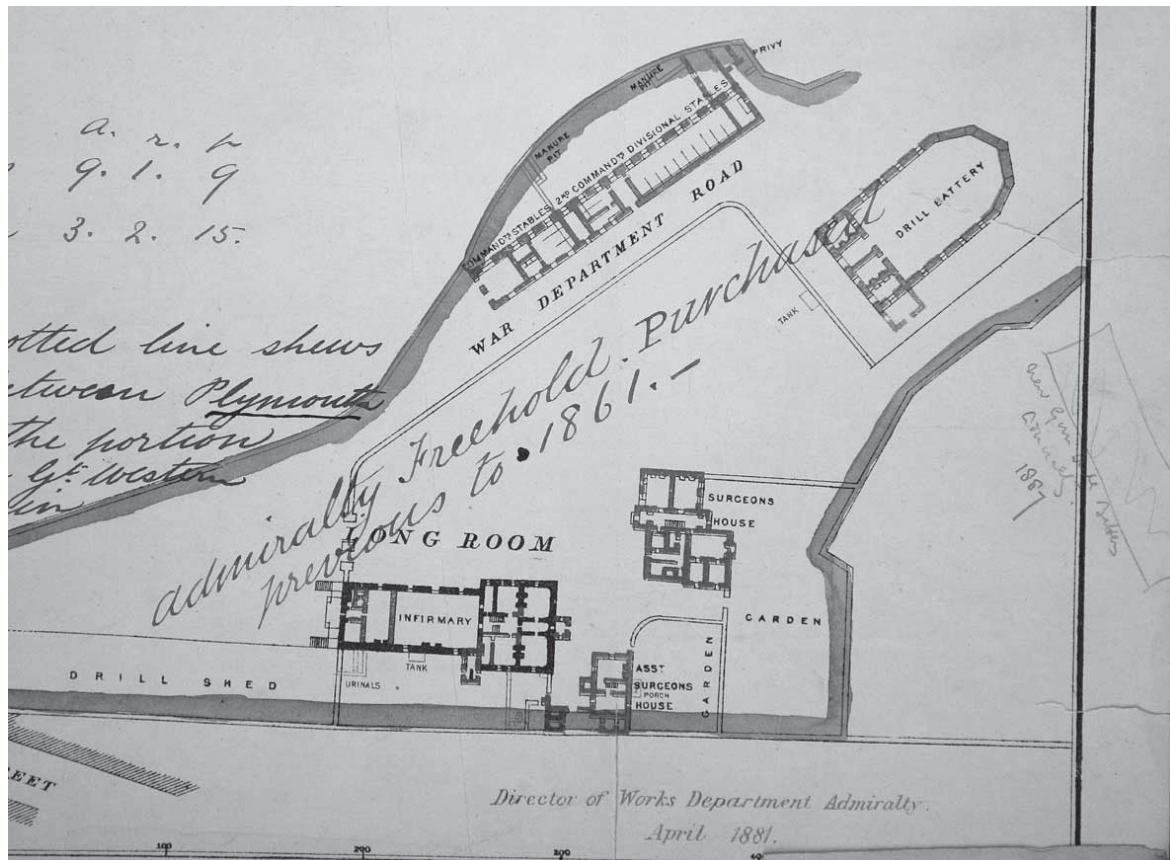 a. r. p
9. 1. 9
3. 2. 15.
otted line shews
etween Plymouth
the portion
Gt. Western
in
PRIVY
MANURE PIT
MANURE PIT
COMMANDTS STABLES 2ND COMMANDTS DIVISIONAL STABLES
WAR DEPARTMENT ROAD
DRILL BATTERY
TANK
admiralty Freehold. Purchased
previous to 1861.-
1887
LONG ROOM
SURGEONS
HOUSE
INFIRMARY
GARDEN
GARDEN
ASST
SURGEONS
PORCH
HOUSE
TANK
URINALS
DRILL SHED
REET
Director of Works Department Admiralty.
April 1881.
100
200
300